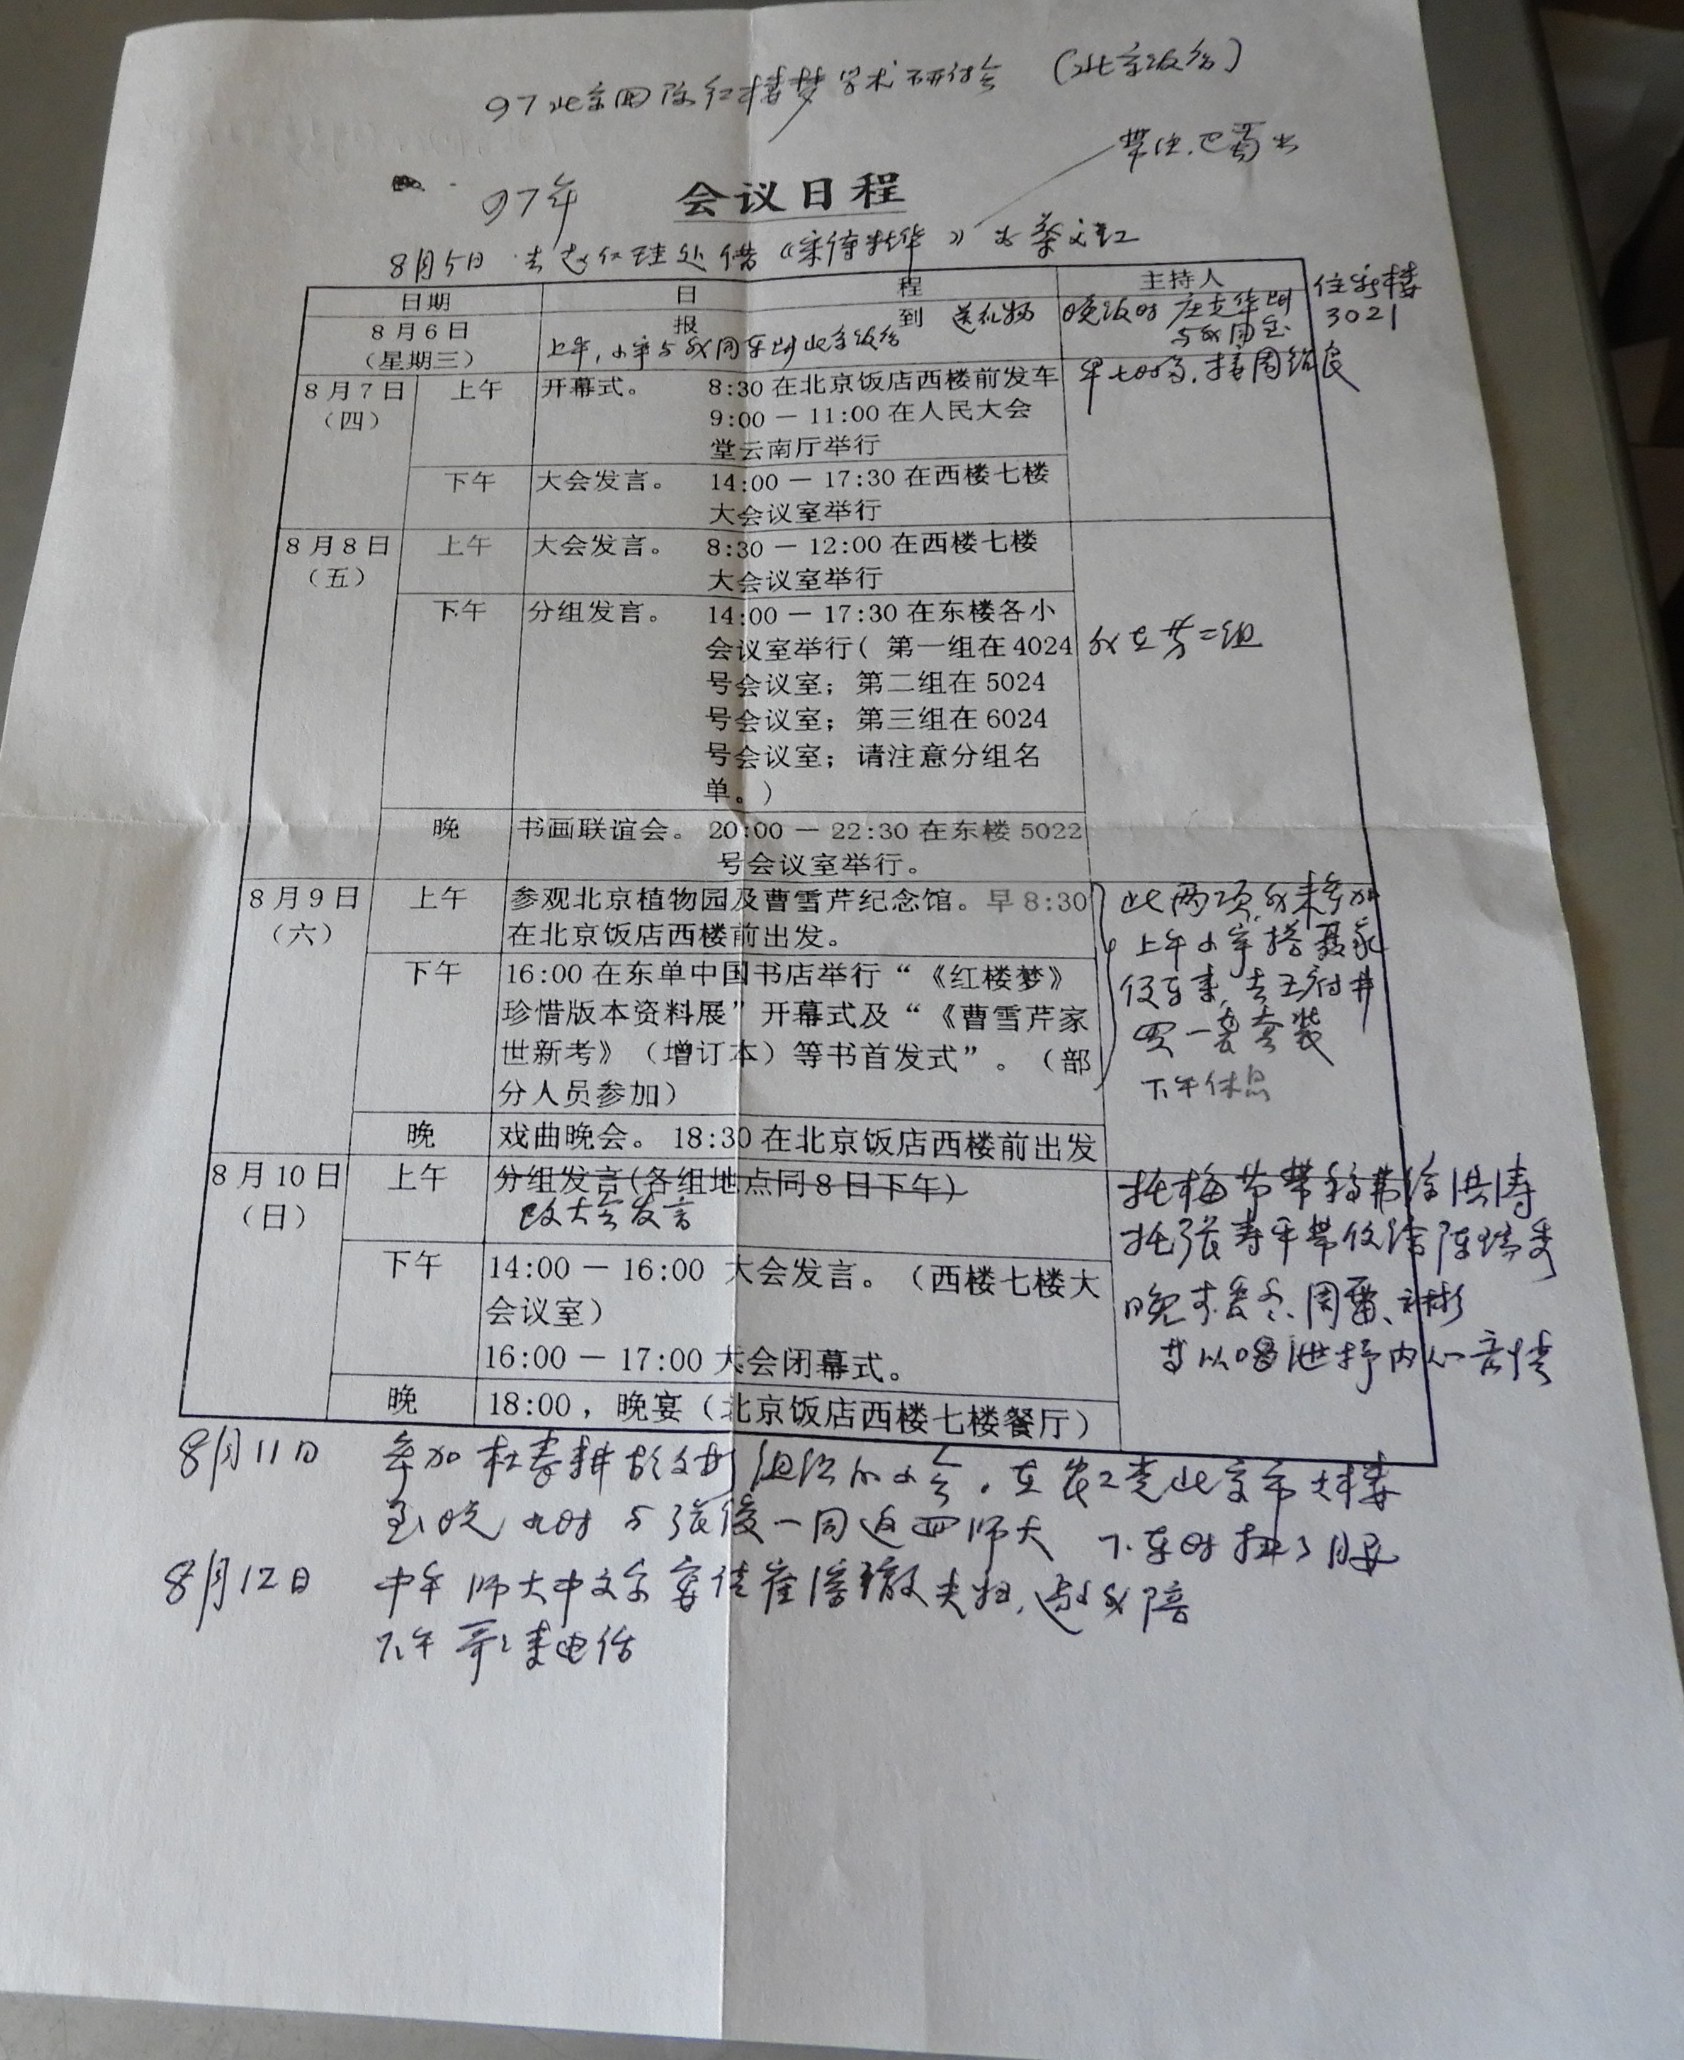 97北京国际红楼梦学术研讨会 (北京饭店)
97年
会议日程
8月5日 去赵仁珪处借《宋诗精华》
日期 日 程 主持人
住新楼
3021
8月6日
(星期三)
报 到 送礼物
上午,小军与我同车 北京饭店
晚饭时
与我同室
8月7日
(四)
上午 开幕式。 8:30在北京饭店西楼前发车
9:00－11:00在人民大会
堂云南厅举行
早七时多,接周绍良
下午 大会发言。 14:00－17:30在西楼七楼
大会议室举行
8月8日
(五)
上午 大会发言。 8:30－12:00在西楼七楼
大会议室举行
下午 分组发言。 14:00－17:30在东楼各小
会议室举行( 第一组在4024
号会议室; 第二组在5024
号会议室; 第三组在6024
号会议室; 请注意分组名
单。)
我在第二组
晚 书画联谊会。 20:00－22:30在东楼5022
号会议室举行。
8月9日
(六)
上午 参观北京植物园及曹雪芹纪念馆。早8:30
在北京饭店西楼前出发。
下午 16:00在东单中国书店举行“《红楼梦》
珍惜版本资料展”开幕式及“《曹雪芹家
世新考》(增订本)等书首发式”。(部
分人员参加)
此两项我未参加
上午小军搭
车来,去王府井
买一套套装
下午休息
晚 戏曲晚会。 18:30在北京饭店西楼前出发
8月10日
(日)
上午 分组发言(各组地点同8日下午)
改大会发言
下午 14:00－16:00 大会发言。(西楼七楼大
会议室)
16:00－17:00 大会闭幕式。
晚 18:00,晚宴(北京饭店西楼七楼餐厅)
托梅节带 给洪涛
托张寿平带 给陈
晚 周雷、
等以唱 抒内心
8月11日 参加杜春耕胡文彬组织的小会。在 北京市大楼
至晚九时与张俊一同返回师大 下车时扭了腰
8月12日 中午师大中文系宴请崔 夫妇,邀我陪
下午哥哥来电话